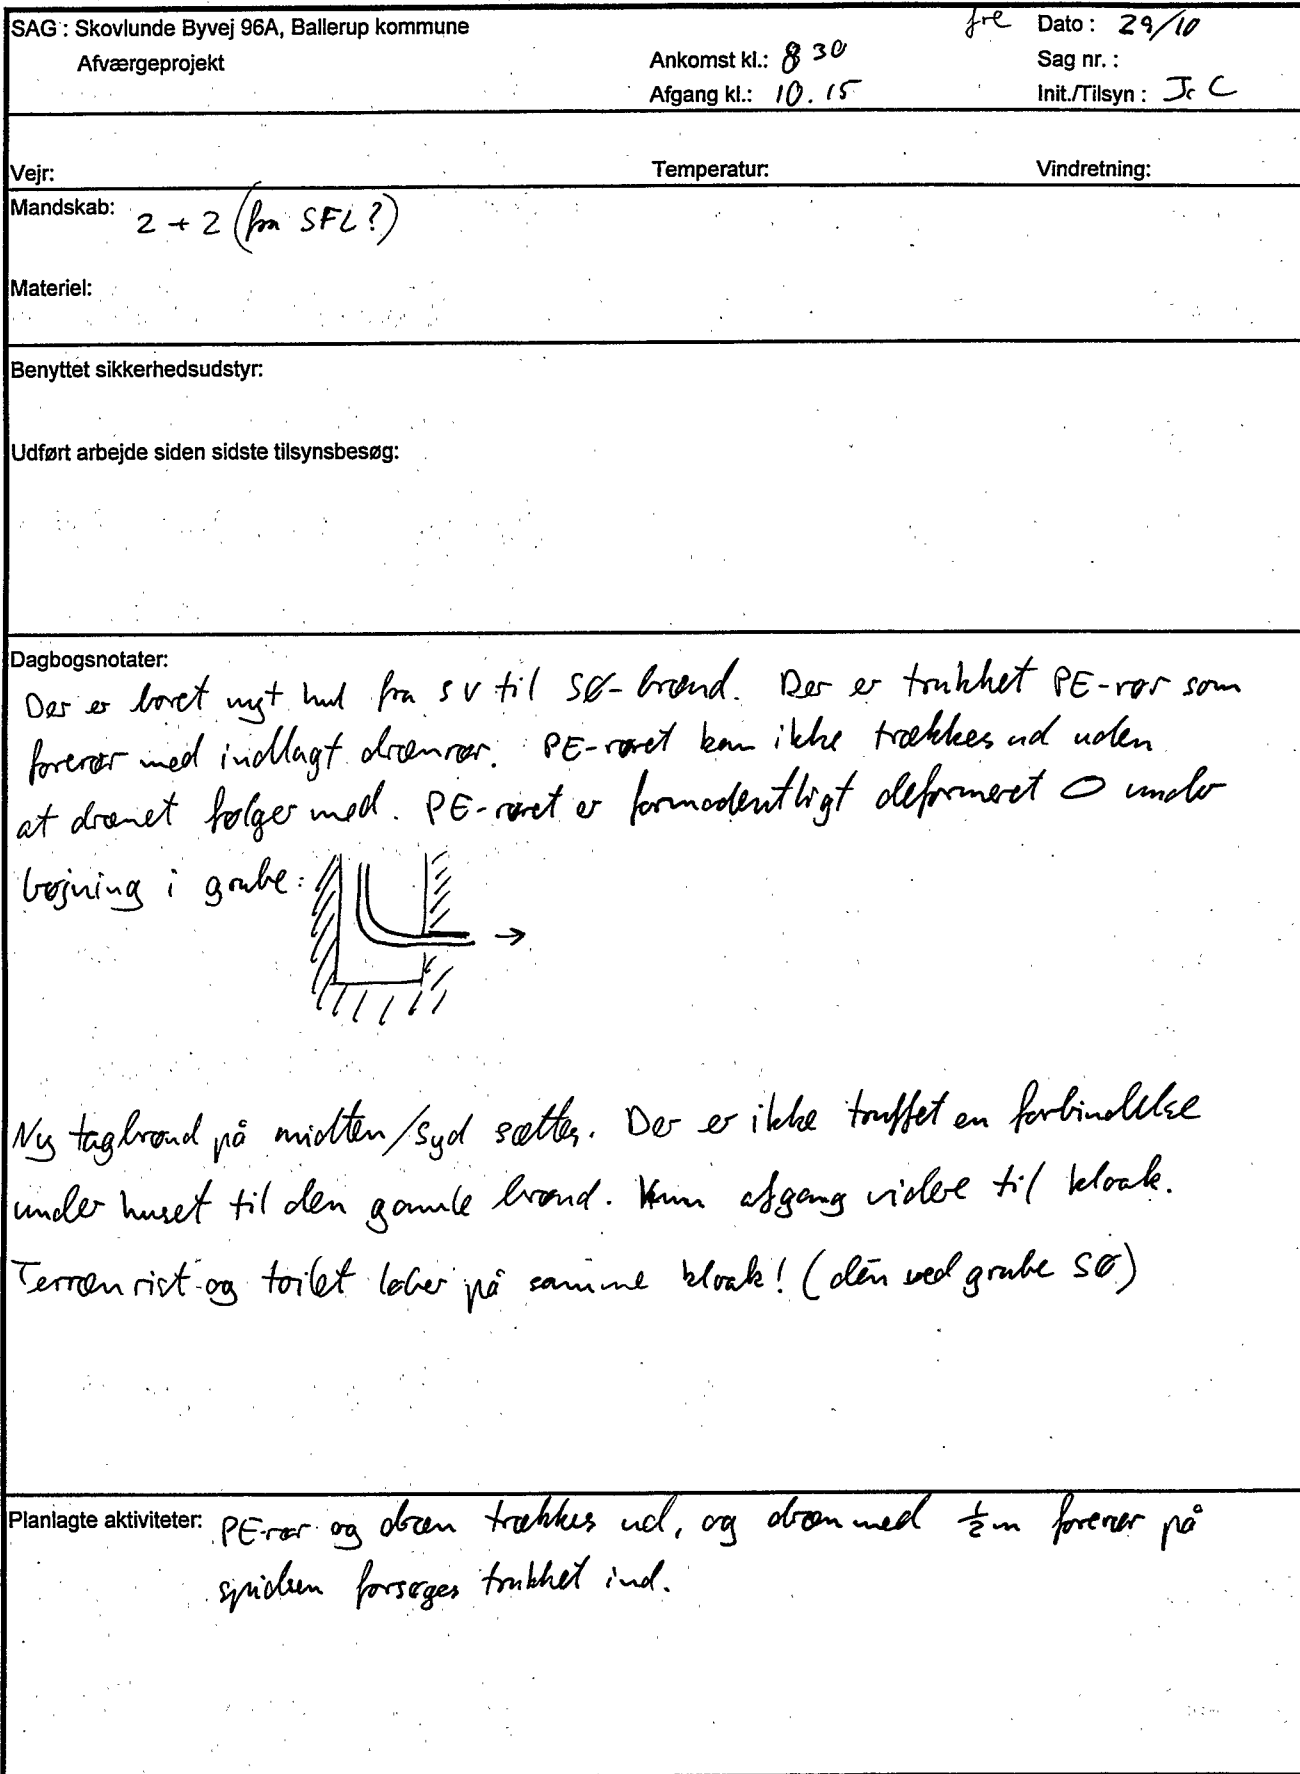 SAG : Skovlunde Byvej 96A, Ballerup kommune fre Dato : 29/10
Afværgeprojekt Ankomst kl.: 8 30 Sag nr. :
Afgang kl.: 10.15 Init./Tilsyn : JrC
Vejr: Temperatur: Vindretning:
Mandskab: 2 + 2 (fra SFL?)
Materiel:
Benyttet sikkerhedsudstyr:
Udført arbejde siden sidste tilsynsbesøg:
Dagbogsnotater:
Der er boret nyt hul fra SV til SØ-brønd. Der er trukket PE-rør som
forerør med indlagt drænrør. PE-røret kan ikke trækkes ud uden
at drænet følger med. PE-røret er formodentligt deformeret under
bøjning i grube:
Ny tagbrønd på midten/syd sættes. Der er ikke truffet en forbindelse
under huset til den gamle brønd. Kun afgang videre til kloak.
Terrænrist og toilet løber på samme kloak! (den ved grube SØ)
Planlagte aktiviteter: PE-rør og dræn trækkes ud, og dræn med ½ m forerør på
spidsen forsøges trukket ind.